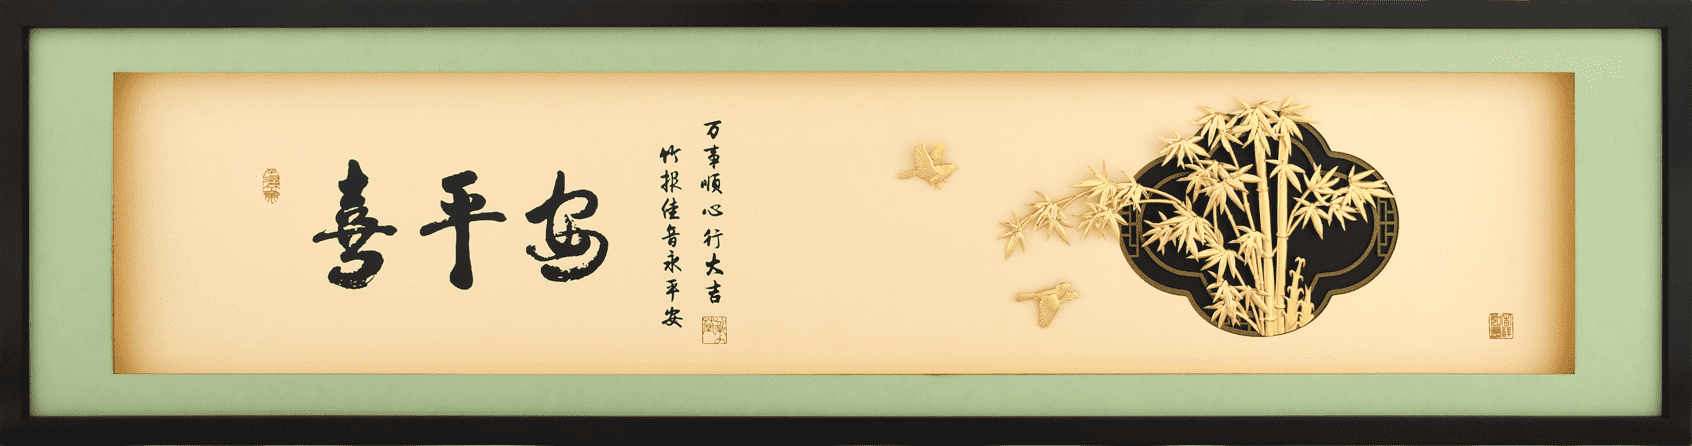 喜平安
万事順心行大吉
竹报佳音永平安